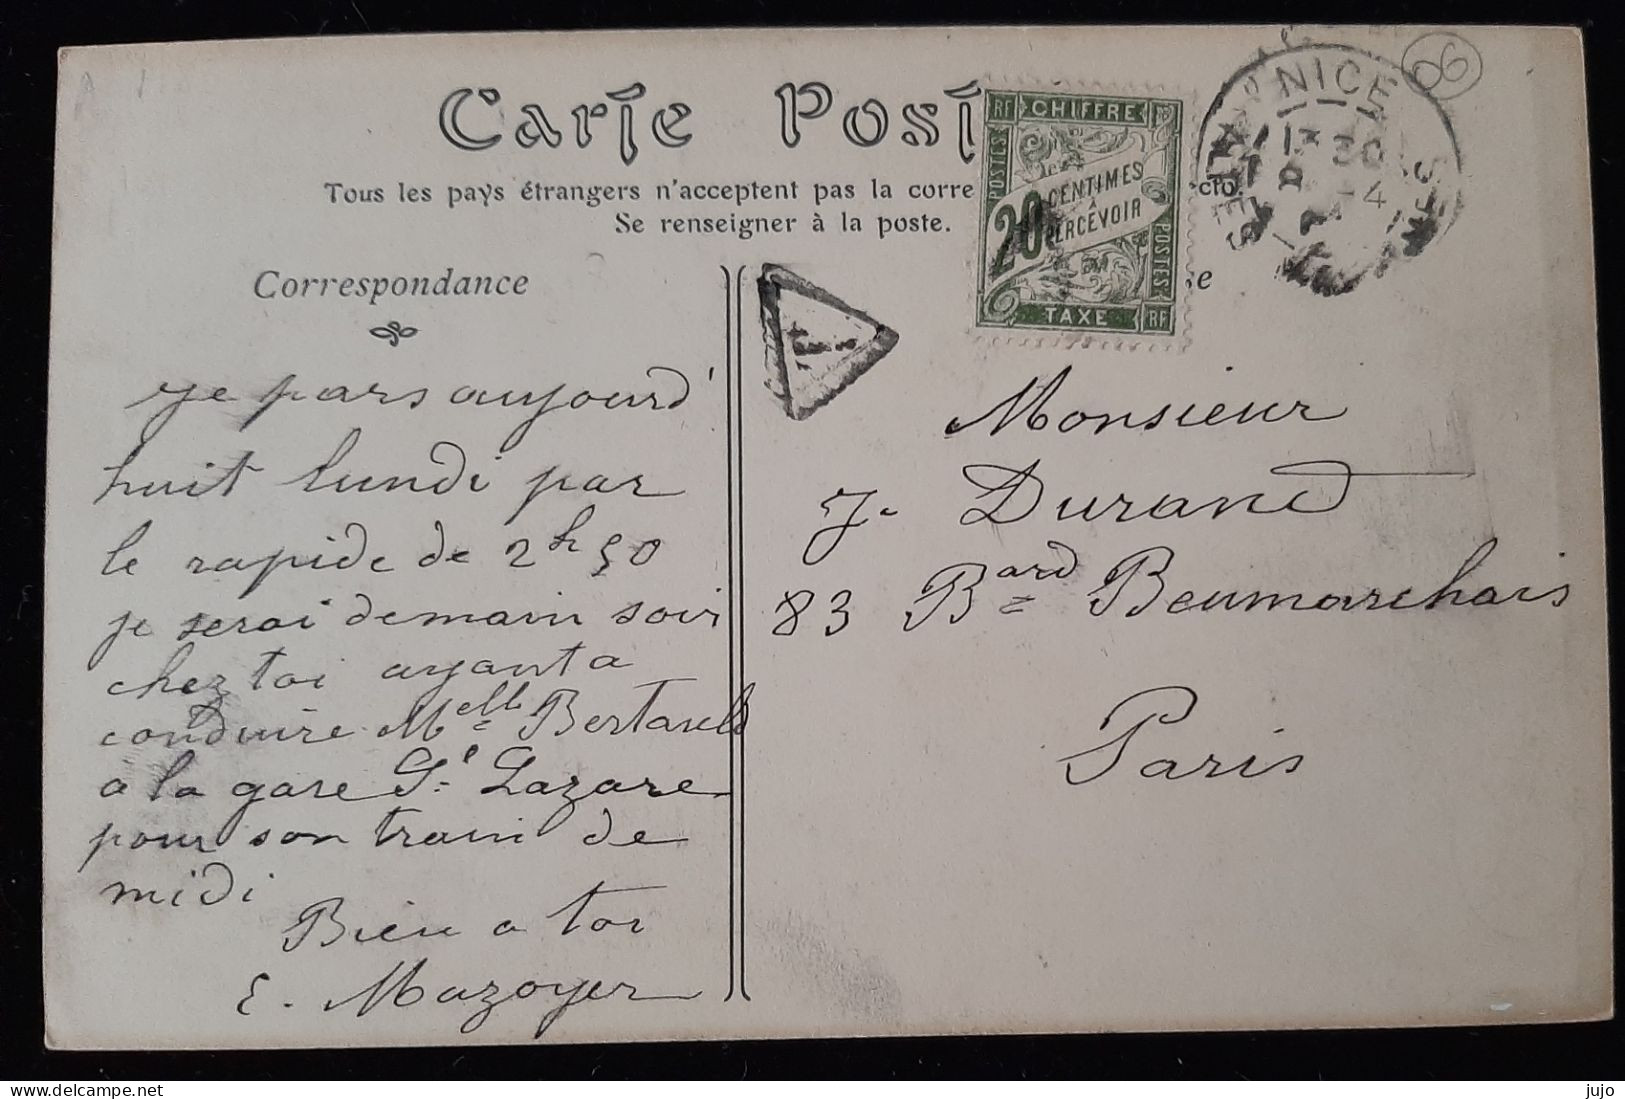 Carte Post
Tous les pays étrangers n'acceptent pas la corre
Se renseigner à la poste.
Correspondance
je pars aujourd'
huit lundi par
le rapide de 2h50
je serai demain soir
chez toi ayant a
conduire Melle
a la gare St Lazare
pour son train de
midi
Bien a toi
E. Mazoyer
RF CHIFFRE
POSTES
20 CENTIMES
A
PERCEVOIR
POSTES
TAXE RF
T
NICE
30
4
06
se
Monsieur
J. Durand
83 Bard Beumarchais
Paris
jujo